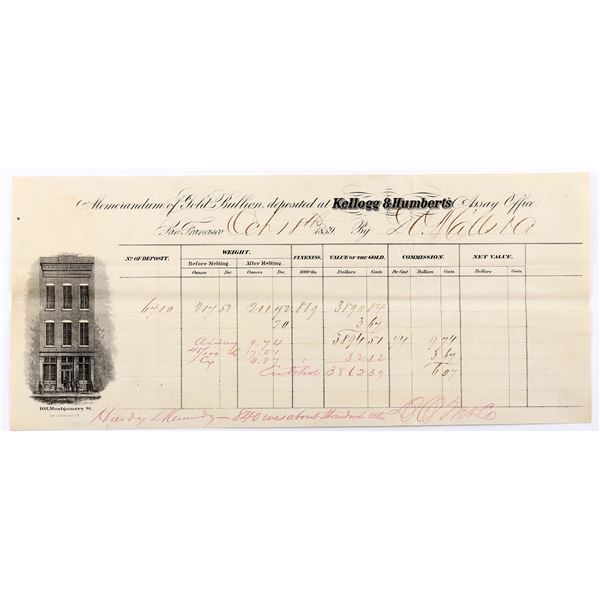 Memorandum of Gold Bullion, deposited at Kellogg & Humberts Assay Office
San Francisco Oct 18th 1859 By D. O. Mills & Co
WEIGHT.
No. OF DEPOSIT. Before Melting. After Melting. FINENESS. VALUE OF THE GOLD. COMMISSION. NET VALUE.
Ounces Dec Ounces Dec 1000 ths Dollars Cents Per Cent Dollars Cents Dollars Cents
6710 217 52 211 92 889 3890 84
20 3 67
Assay 9.74 3894 51 1/4 9 74
17.51 32 12 3 67
4.87 6 07
Credited 3862 39
Hardy & Kennedy — 840 was about Standard D. O. M & Co
104, Montgomery St.